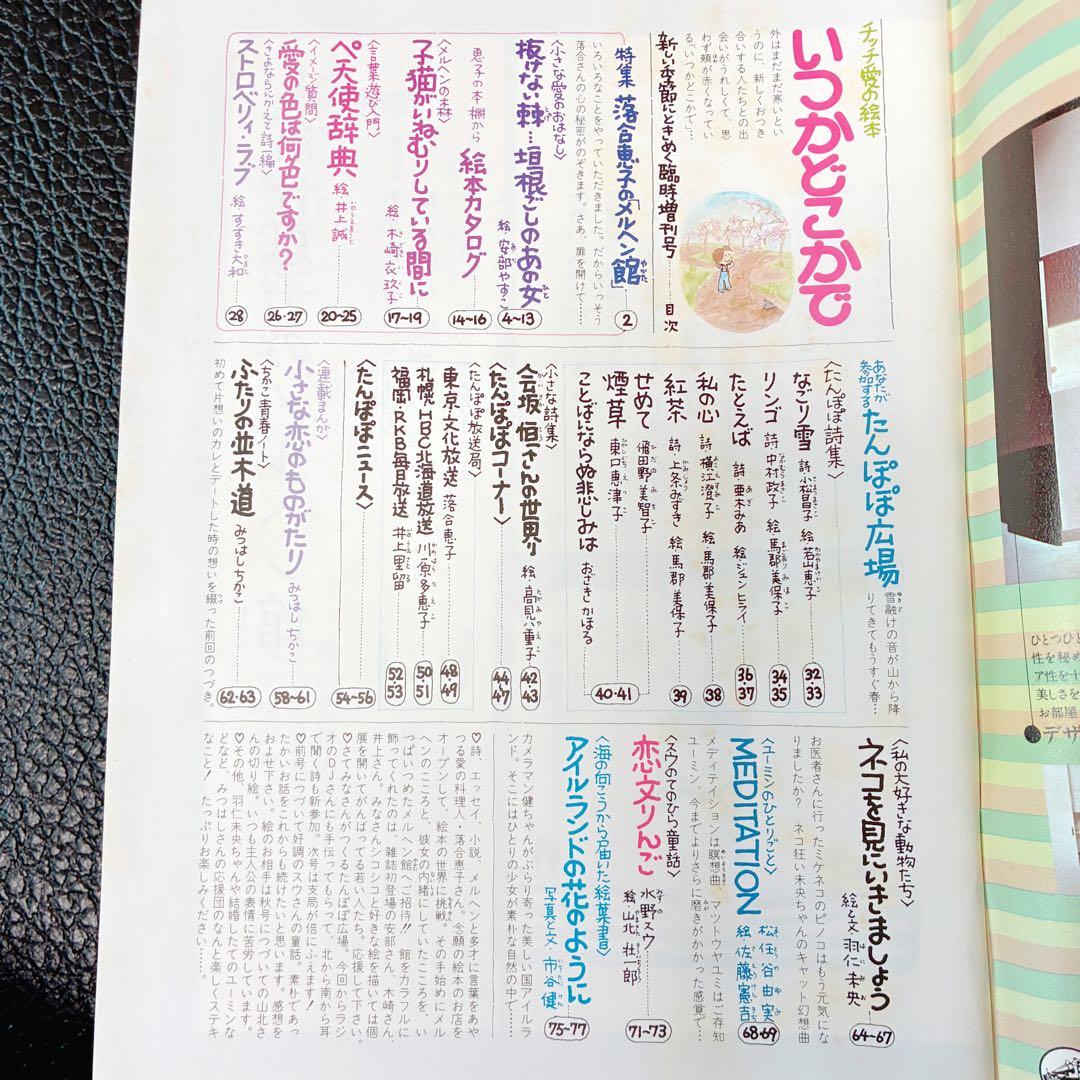 チッチ愛の絵本
いつかどこかで
外はまだまだ寒いとい
うのに、新しくおつき
合いする人たちとの出
会いがうれしくて、思
わず頬が赤くなってい
る『いつかどこかで』…
新しい季節にときめく臨時増刊号……目次
特集 落合恵子の「メルヘン館」 2
いろいろなことをやっていただきました。だからいっそう
落合さんの心の秘密がのぞきます。さあ、扉を開けて……
〈小さな愛のおはなし〉
抜けない棘…垣根ごしのあの女 絵・安部やすこ 4~13
恵子の本棚から 絵本カタログ 14~16
〈メルヘンの森〉
子猫がいねむりしている間に 絵・木崎衣玖子 17~19
〈言葉遊び入門〉
ペ天使辞典 絵・井上誠 20~25
〈イメージ質問〉
愛の色は何ゲ色ですか? 26・27
〈さよならにかえて詩一編〉
ストロベリィ・ラブ 絵 すずき大和 28
あなたが参加する たんぽぽ広場
雪融けの音が山から降
りてきてもうすぐ春…
〈たんぽぽ詩集〉
なごり雪 詩・小松昌子 絵 若山恵子 32・33
リンゴ 詩 中村政子 絵 馬郡美保子 34・35
たとえば 詩・亜木みあ 絵 ジョン・ヒライ 36・37
私の心 詩 横江澄子 絵・馬郡美保子 38
紅茶 詩・上条みずき 絵 馬郡美保子 39
せめて 飛田野美智子
煙草 東口恵津子
ことばにならぬ悲しみは おざきかほる 40・41
〈小さな詩集〉
会坂恒さんの世界り 絵・高見八重子 42 43
〈たんぽぽコーナー〉 44~47
〈たんぽぽ放送局〉
東京・文化放送 落合恵子 48 49
札幌・HBC北海道放送 川原多恵子 50 51
福岡・RKB毎日放送 井上里留 52 53
〈たんぽぽニュース〉 54~56
〈連載まんが〉
小さな恋のものがたり みつはしちかこ 58~61
〈ちかこ青春ノート〉
ふたりの並木道 みつはしちかこ 62・63
初めて片想いのカレとデートした時の想いを綴った前回のつづき。
〈私の大好きな動物たち〉
ネコを見にいきましょう 絵と文・羽仁未央 64~67
お医者さんに行ったミケネコのピノコはもう元気にな
りましたか? ネコ狂い未央ちゃんのキャット幻想曲
〈ユーミンのひとりごと〉
MEDITATION 松任谷由実 絵 佐藤憲吉 68・69
メディテイションは瞑想曲、マツトウヤユミはご存知
ユーミン、今までよりさらに磨きがかかった感覚で…
〈スウのてのひら童話〉
恋文りんご 水野スウ 絵・山北壮一郎 71~73
〈海の向こうから届いた絵葉書〉
アイルランドの花のように 写真と文・市谷健 75~77
カメラマン健ちゃんがぶらり寄った美しい国アイルラ
ンド。そこにはひとりの少女が素朴な自然の中で……
♡詩、エッセイ、小説、メルヘンと多才に言葉をあや
つる愛の料理人・落合恵子さん。念願の絵本のお店を
オープンして、絵本の世界に挑戦。その手始めにメル
ヘンのこころと、彼女の内緒にしていたこころを、い
っぱいつめたメルヘン館へご招待!! 館をカラフルに
飾ってくれたのは、雑誌初登場の安部さん、木崎さん、
井上さん。みなさんシコシコと好きな絵を描いては個
展を開いてがんばってる若い人たち。応援して下さい。
♡さてみなさんがつくるたんぽぽ広場。今回からラジ
オのDJさんにも手伝ってもらって、北から南から耳
で聞く詩も新参加。次号は支局が倍にふえます!
♡前号につづいて好調のスウさんの童話。素朴であっ
たかいお話をこれからも続けたいと思います。感想を
およせ下さい。絵のお相手は秋号につづいての山北さ
んの切り絵。いつも主人公の表情に苦労しています。
♡その他、羽仁未央ちゃんや結婚したてのユーミンな
どなど、みつはしさんの応援団のなんと楽しくステキ
なこと! たっぷりお楽しみください……。
ひとつひと
性を秘め
ア性を十
美しさを
お部屋
●デザ